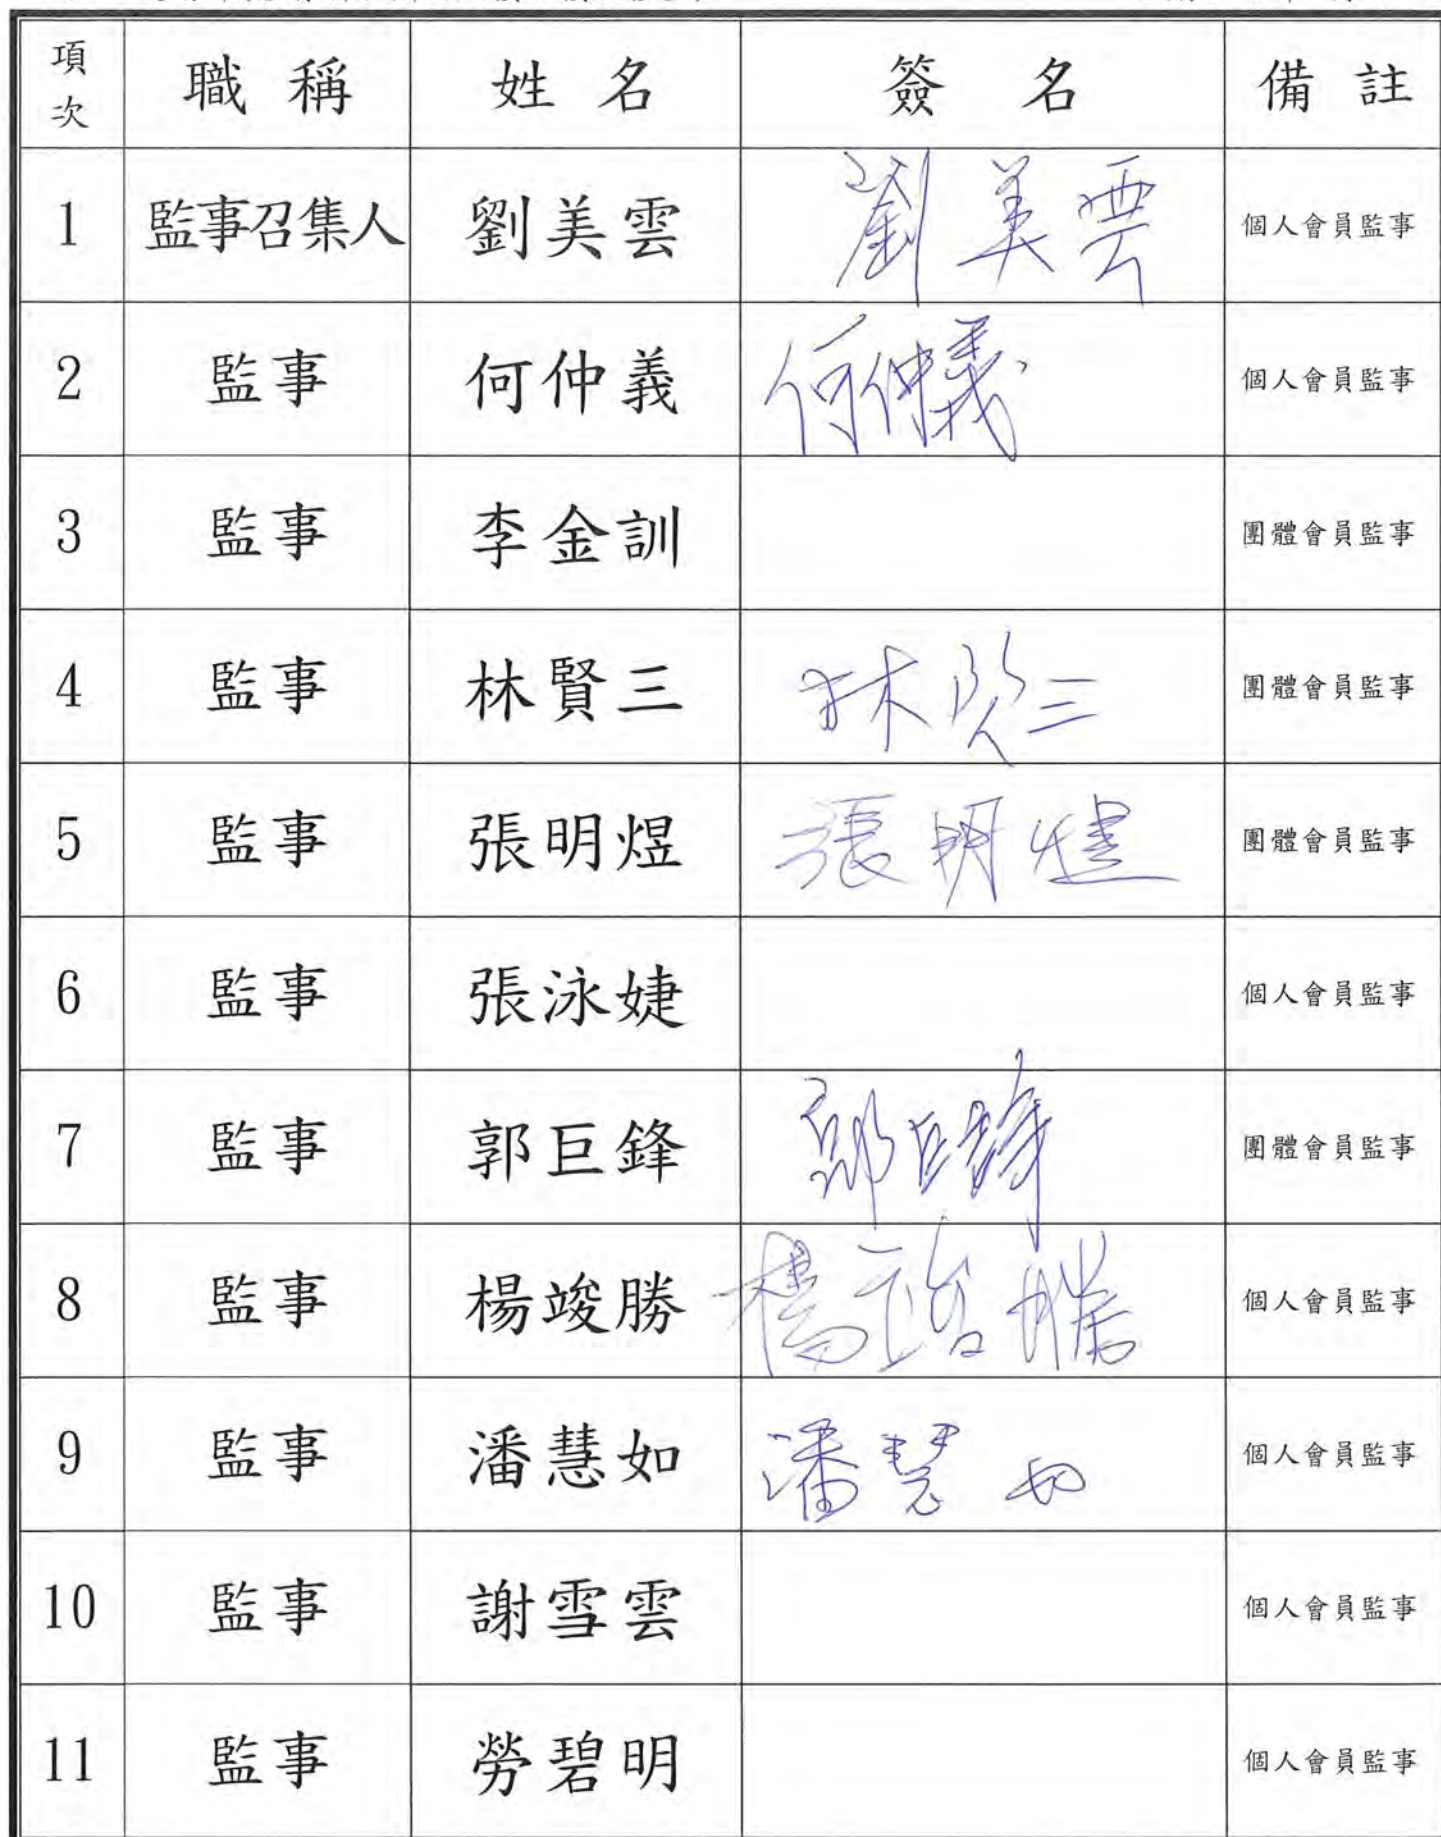 項次 職稱 姓名 簽名 備註
1 監事召集人 劉美雲 劉美雲 個人會員監事
2 監事 何仲義 何仲義 個人會員監事
3 監事 李金訓 團體會員監事
4 監事 林賢三 林賢三 團體會員監事
5 監事 張明煜 張明煜 團體會員監事
6 監事 張泳婕 個人會員監事
7 監事 郭巨鋒 郭巨鋒 團體會員監事
8 監事 楊竣勝 楊竣勝 個人會員監事
9 監事 潘慧如 潘慧如 個人會員監事
10 監事 謝雪雲 個人會員監事
11 監事 勞碧明 個人會員監事